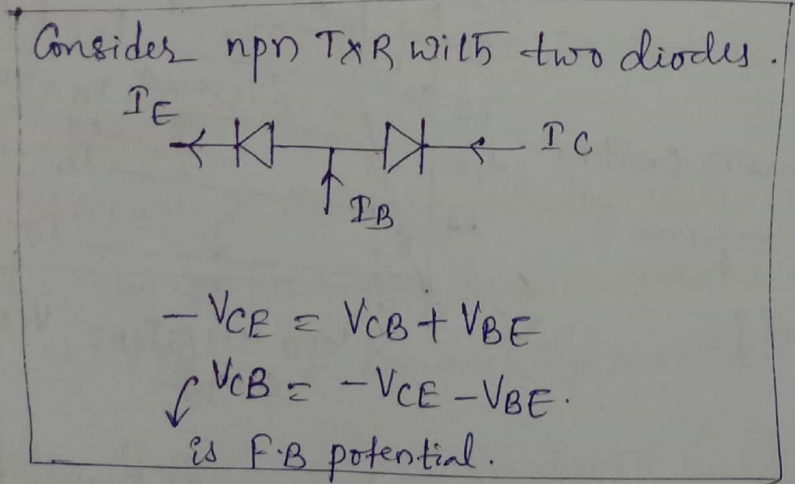 Consider npn TXR with two diodes.
IE
IC
IB
- VCE = VCB + VBE
VCB = - VCE - VBE.
is F.B potential.